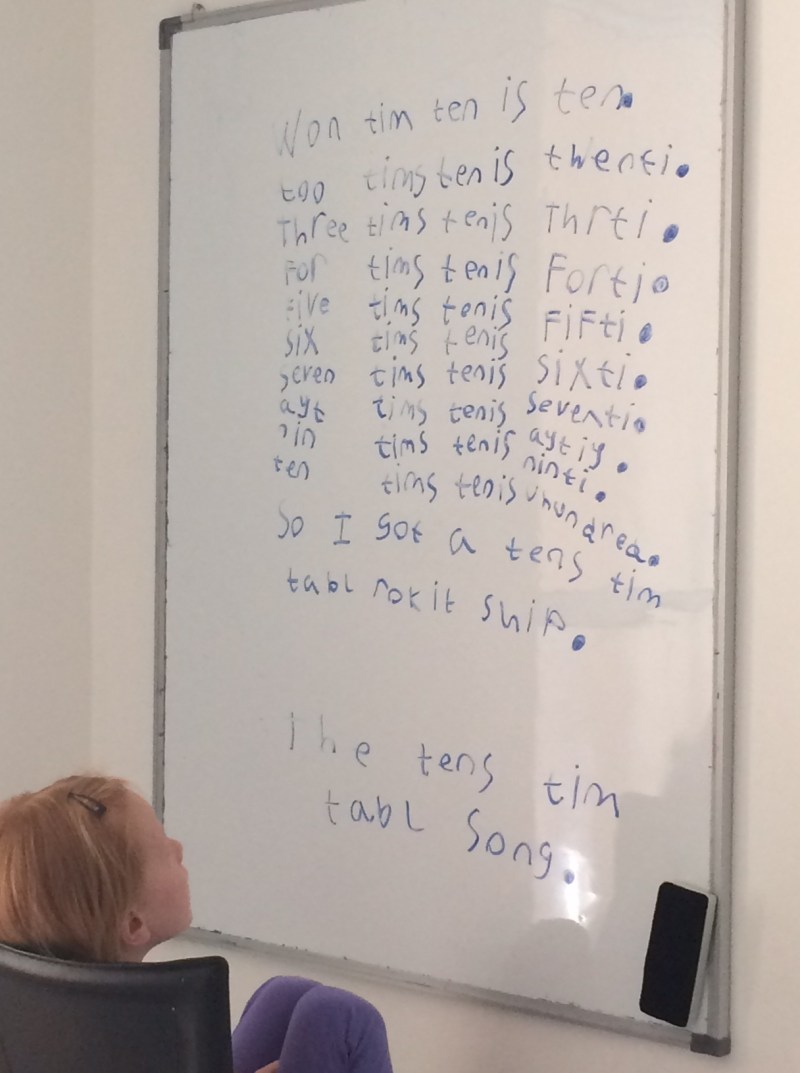 Won tim ten is ten.
too tims ten is twenti.
Three tims tenis Thrti.
For tims tenis Forti.
five tims tenis FiFti.
six tims tenis sixti.
seven tims tenis seventi.
ayt tims tenis aytiy.
nin tims tenis ninti.
ten tims tenis uhundred.
So I got a tens tim
tabl rokit ship.
The tens tim
tabl song.